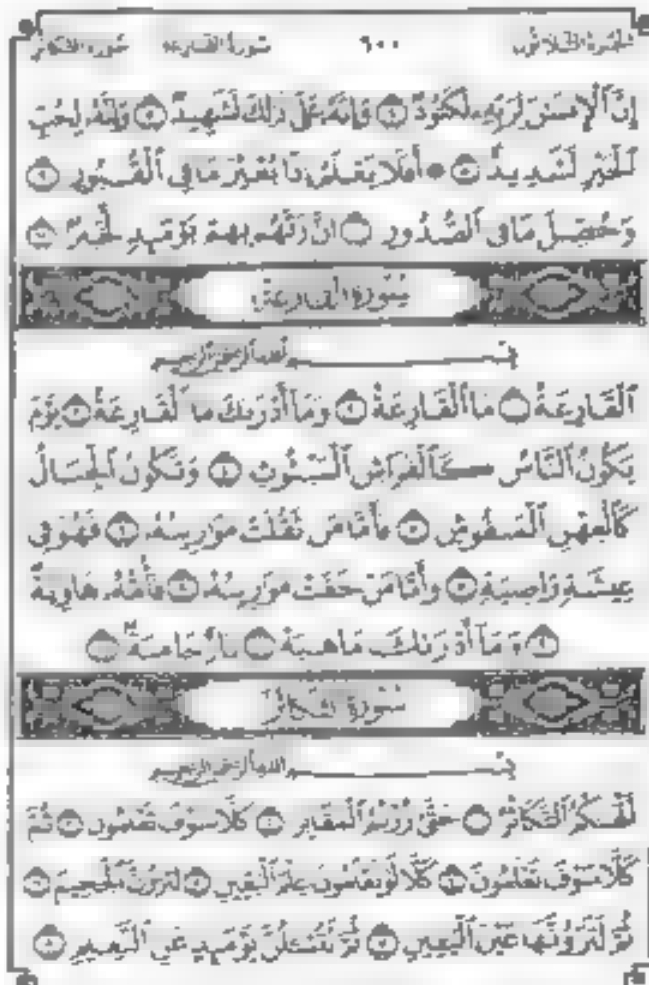 الجزء الثلاثون ٦٠٠ سورة القارعة سورة التكاثر
إِنَّ ٱلْإِنسَٰنَ لِرَبِّهِۦ لَكَنُودٌ ٦ وَإِنَّهُۥ عَلَىٰ ذَٰلِكَ لَشَهِيدٌ ٧ وَإِنَّهُۥ لِحُبِّ
ٱلْخَيْرِ لَشَدِيدٌ ٨ ۞ أَفَلَا يَعْلَمُ إِذَا بُعْثِرَ مَا فِى ٱلْقُبُورِ ٩
وَحُصِّلَ مَا فِى ٱلصُّدُورِ ١٠ إِنَّ رَبَّهُم بِهِمْ يَوْمَئِذٍ لَّخَبِيرٌۢ ١١
سُورَةُ القَارِعَةِ
بِسْمِ ٱللَّهِ ٱلرَّحْمَٰنِ ٱلرَّحِيمِ
ٱلْقَارِعَةُ ١ مَا ٱلْقَارِعَةُ ٢ وَمَآ أَدْرَىٰكَ مَا ٱلْقَارِعَةُ ٣ يَوْمَ
يَكُونُ ٱلنَّاسُ كَٱلْفَرَاشِ ٱلْمَبْثُوثِ ٤ وَتَكُونُ ٱلْجِبَالُ
كَٱلْعِهْنِ ٱلْمَنفُوشِ ٥ فَأَمَّا مَن ثَقُلَتْ مَوَٰزِينُهُۥ ٦ فَهُوَ فِى
عِيشَةٍ رَّاضِيَةٍ ٧ وَأَمَّا مَنْ خَفَّتْ مَوَٰزِينُهُۥ ٨ فَأُمُّهُۥ هَاوِيَةٌ
٩ وَمَآ أَدْرَىٰكَ مَا هِيَهْ ١٠ نَارٌ حَامِيَةٌۢ ١١
سُورَةُ التَّكَاثُرِ
بِسْمِ ٱللَّهِ ٱلرَّحْمَٰنِ ٱلرَّحِيمِ
أَلْهَىٰكُمُ ٱلتَّكَاثُرُ ١ حَتَّىٰ زُرْتُمُ ٱلْمَقَابِرَ ٢ كَلَّا سَوْفَ تَعْلَمُونَ ٣ ثُمَّ
كَلَّا سَوْفَ تَعْلَمُونَ ٤ كَلَّا لَوْ تَعْلَمُونَ عِلْمَ ٱلْيَقِينِ ٥ لَتَرَوُنَّ ٱلْجَحِيمَ ٦
ثُمَّ لَتَرَوُنَّهَا عَيْنَ ٱلْيَقِينِ ٧ ثُمَّ لَتُسْـَٔلُنَّ يَوْمَئِذٍ عَنِ ٱلنَّعِيمِ ٨